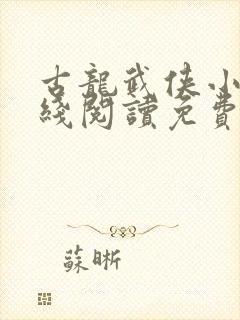 古龍武俠小
綫閱讀免費
蘇晰